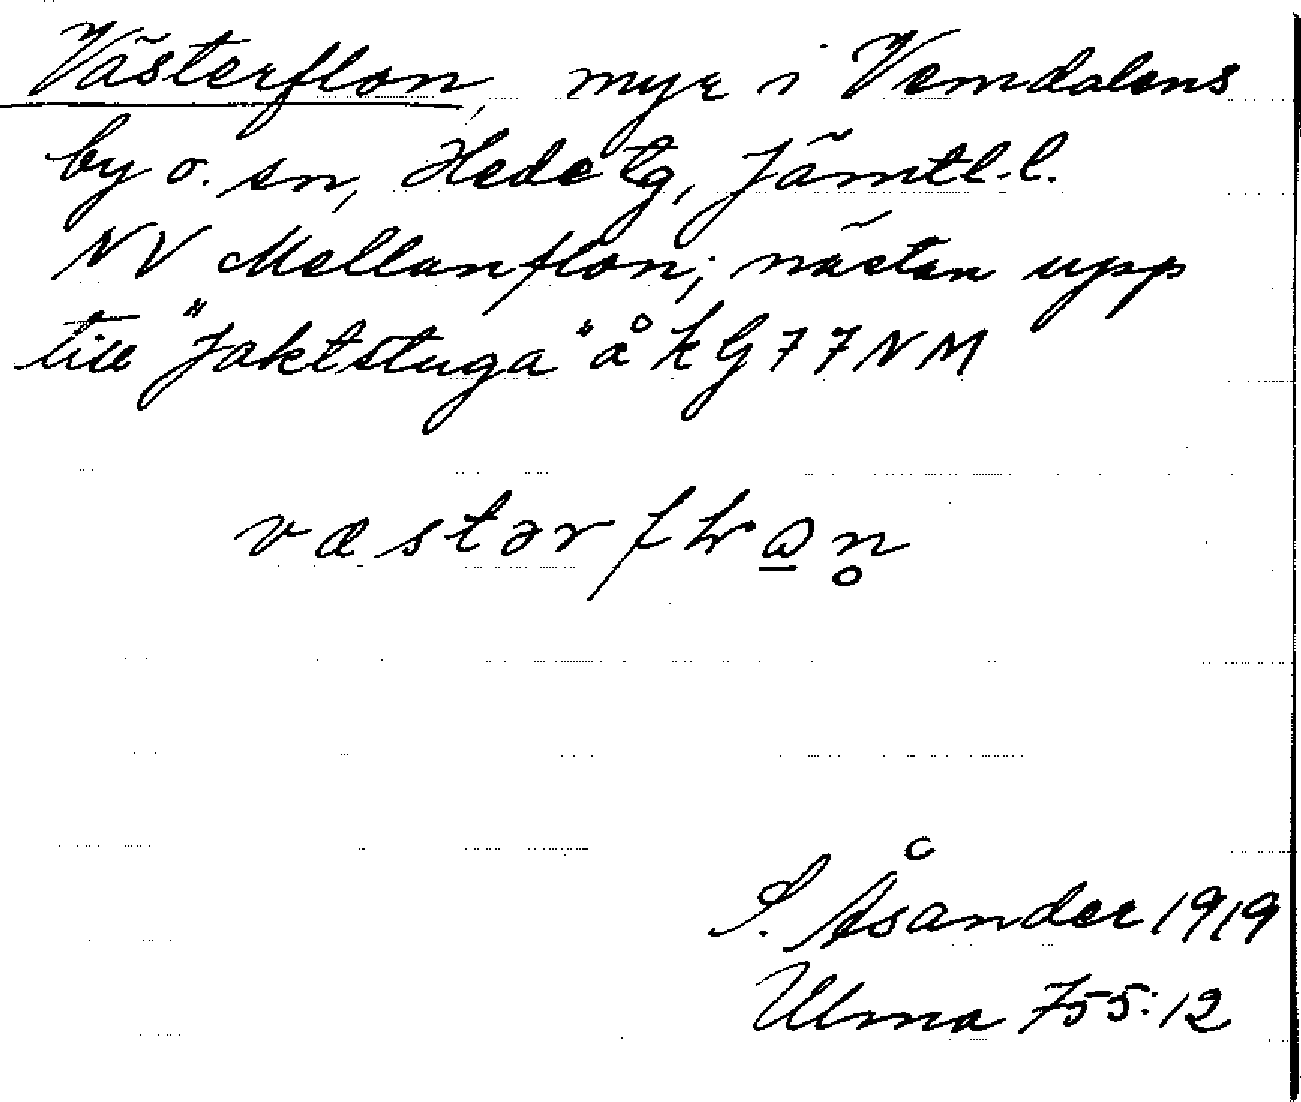 Västerflon, myr i Vemdalens
by o. sn, Hede tg, Jämtl. l.
NV Mellanflon; nästan upp
till "Jaktstuga" å kG77NM
væstərflɷ̠n̥
S. Åsander 1919
Ulma 755:12